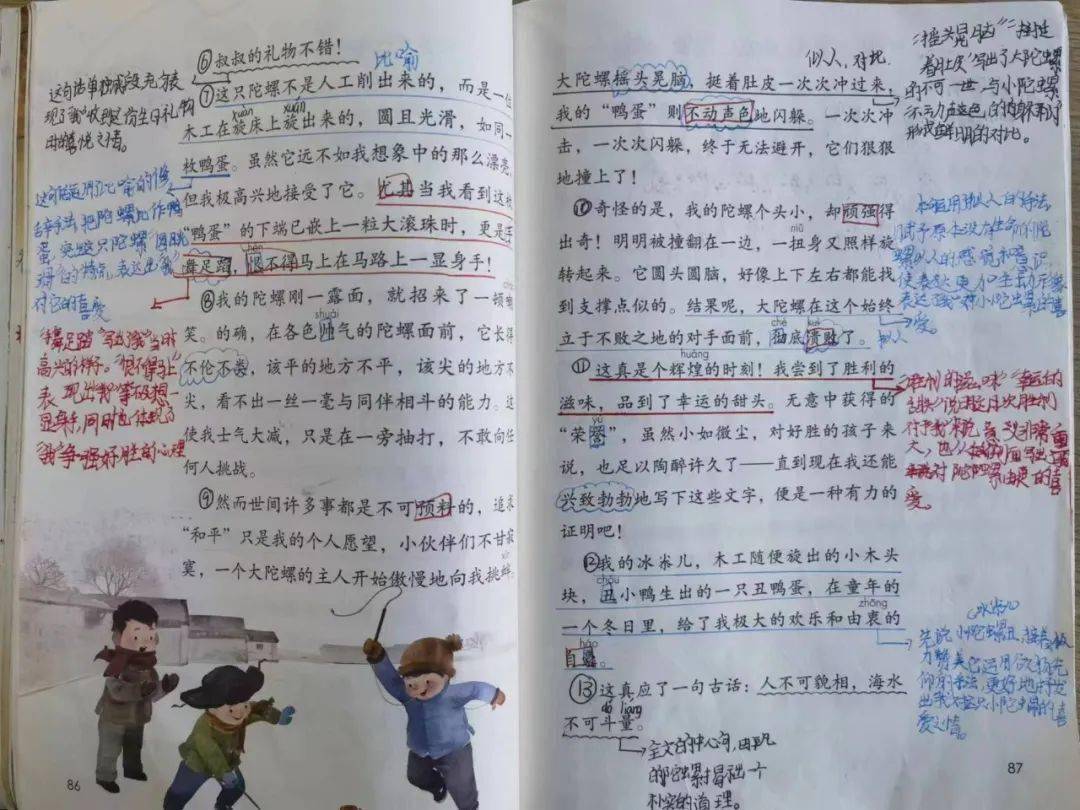 ⑥叔叔的礼物不错！
比喻
⑦这只陀螺不是人工削出来的，而是一位
xuán xuàn
木工在旋床上旋出来的，圆且光滑，如同一
枚鸭蛋。虽然它远不如我想象中的那么漂亮，
但我极高兴地接受了它。尤其当我看到这枚
“鸭蛋”的下端已嵌上一粒大滚珠时，更是手
hèn
舞足蹈，恨不得马上在马路上一显身手！
⑧我的陀螺刚一露面，就招来了一顿嘲
shuài
笑。的确，在各色帅气的陀螺面前，它长得
不伦不类，该平的地方不平，该尖的地方不
尖，看不出一丝一毫与同伴相斗的能力。这
使我士气大减，只是在一旁抽打，不敢向任
何人挑战。
⑨然而世间许多事都是不可预料的，追求
“和平”只是我的个人愿望，小伙伴们不甘寂
寞，一个大陀螺的主人开始傲慢地向我挑衅。
这句话单独成段充分表
现了我收到生日礼物
时的喜悦之情。
这句话运用了比喻的修
辞手法，把陀螺比作鸭
蛋，突出这只陀螺圆且光
对它的喜爱
“手舞足蹈”写出了“我”当时
高兴的样子。“恨不得马上”
表现出“我”等不及想一
显身手，同时也体现了
“我”争强好胜的心理
86
拟人，对比
大陀螺摇头晃脑，挺着肚皮一次次冲过来，
我的“鸭蛋”则不动声色地闪躲。一次次冲
击，一次次闪躲，终于无法避开，它们狠狠
地撞上了！
⑩奇怪的是，我的陀螺个头小，却顽强得
niǔ
出奇！明明被撞翻在一边，一扭身又照样旋
转起来。它圆头圆脑，好像上下左右都能找
到支撑点似的。结果呢，大陀螺在这个始终
chè kuì
立于不败之地的对手面前，彻底溃败了。
拟人
huáng
⑪这真是个辉煌的时刻！我尝到了胜利的
滋味，品到了幸运的甜头。无意中获得的
yù
“荣誉”，虽然小如微尘，对好胜的孩子来
说，也足以陶醉许久了——直到现在我还能
兴致勃勃地写下这些文字，便是一种有力的
证明吧！
⑫我的冰尜儿，木工随便旋出的小木头
chǒu
块，丑小鸭生出的一只丑鸭蛋，在童年的
zhōng
一个冬日里，给了我极大的欢乐和由衷的
háo
自豪。
⑬这真应了一句古话：人不可貌相，海水
dǒu liáng
不可斗量。
全文的中心句，由平凡
的陀螺揭示出一个
朴实的道理。
“摇头晃脑”“挺
着肚皮”写出了大陀螺
的不可一世，与小陀螺
不动声色的闪躲
形成鲜明的对比。
本段运用拟人的手法，
赋予原本没有生命的陀
螺以人的感情和意识，
使表达更加生动形象
表达了“我”对小陀螺的喜
爱。
“胜利的滋味”“幸运的
甜头”说明这次胜利
对于我来说意义非常重
大，也从侧面写出了
我对陀螺由衷的喜
爱。
冰尜儿
先说小陀螺丑，接着极
力赞美它，运用欲扬先
抑的手法，更好地表达
出我对这只小陀螺的喜
爱之情。
87